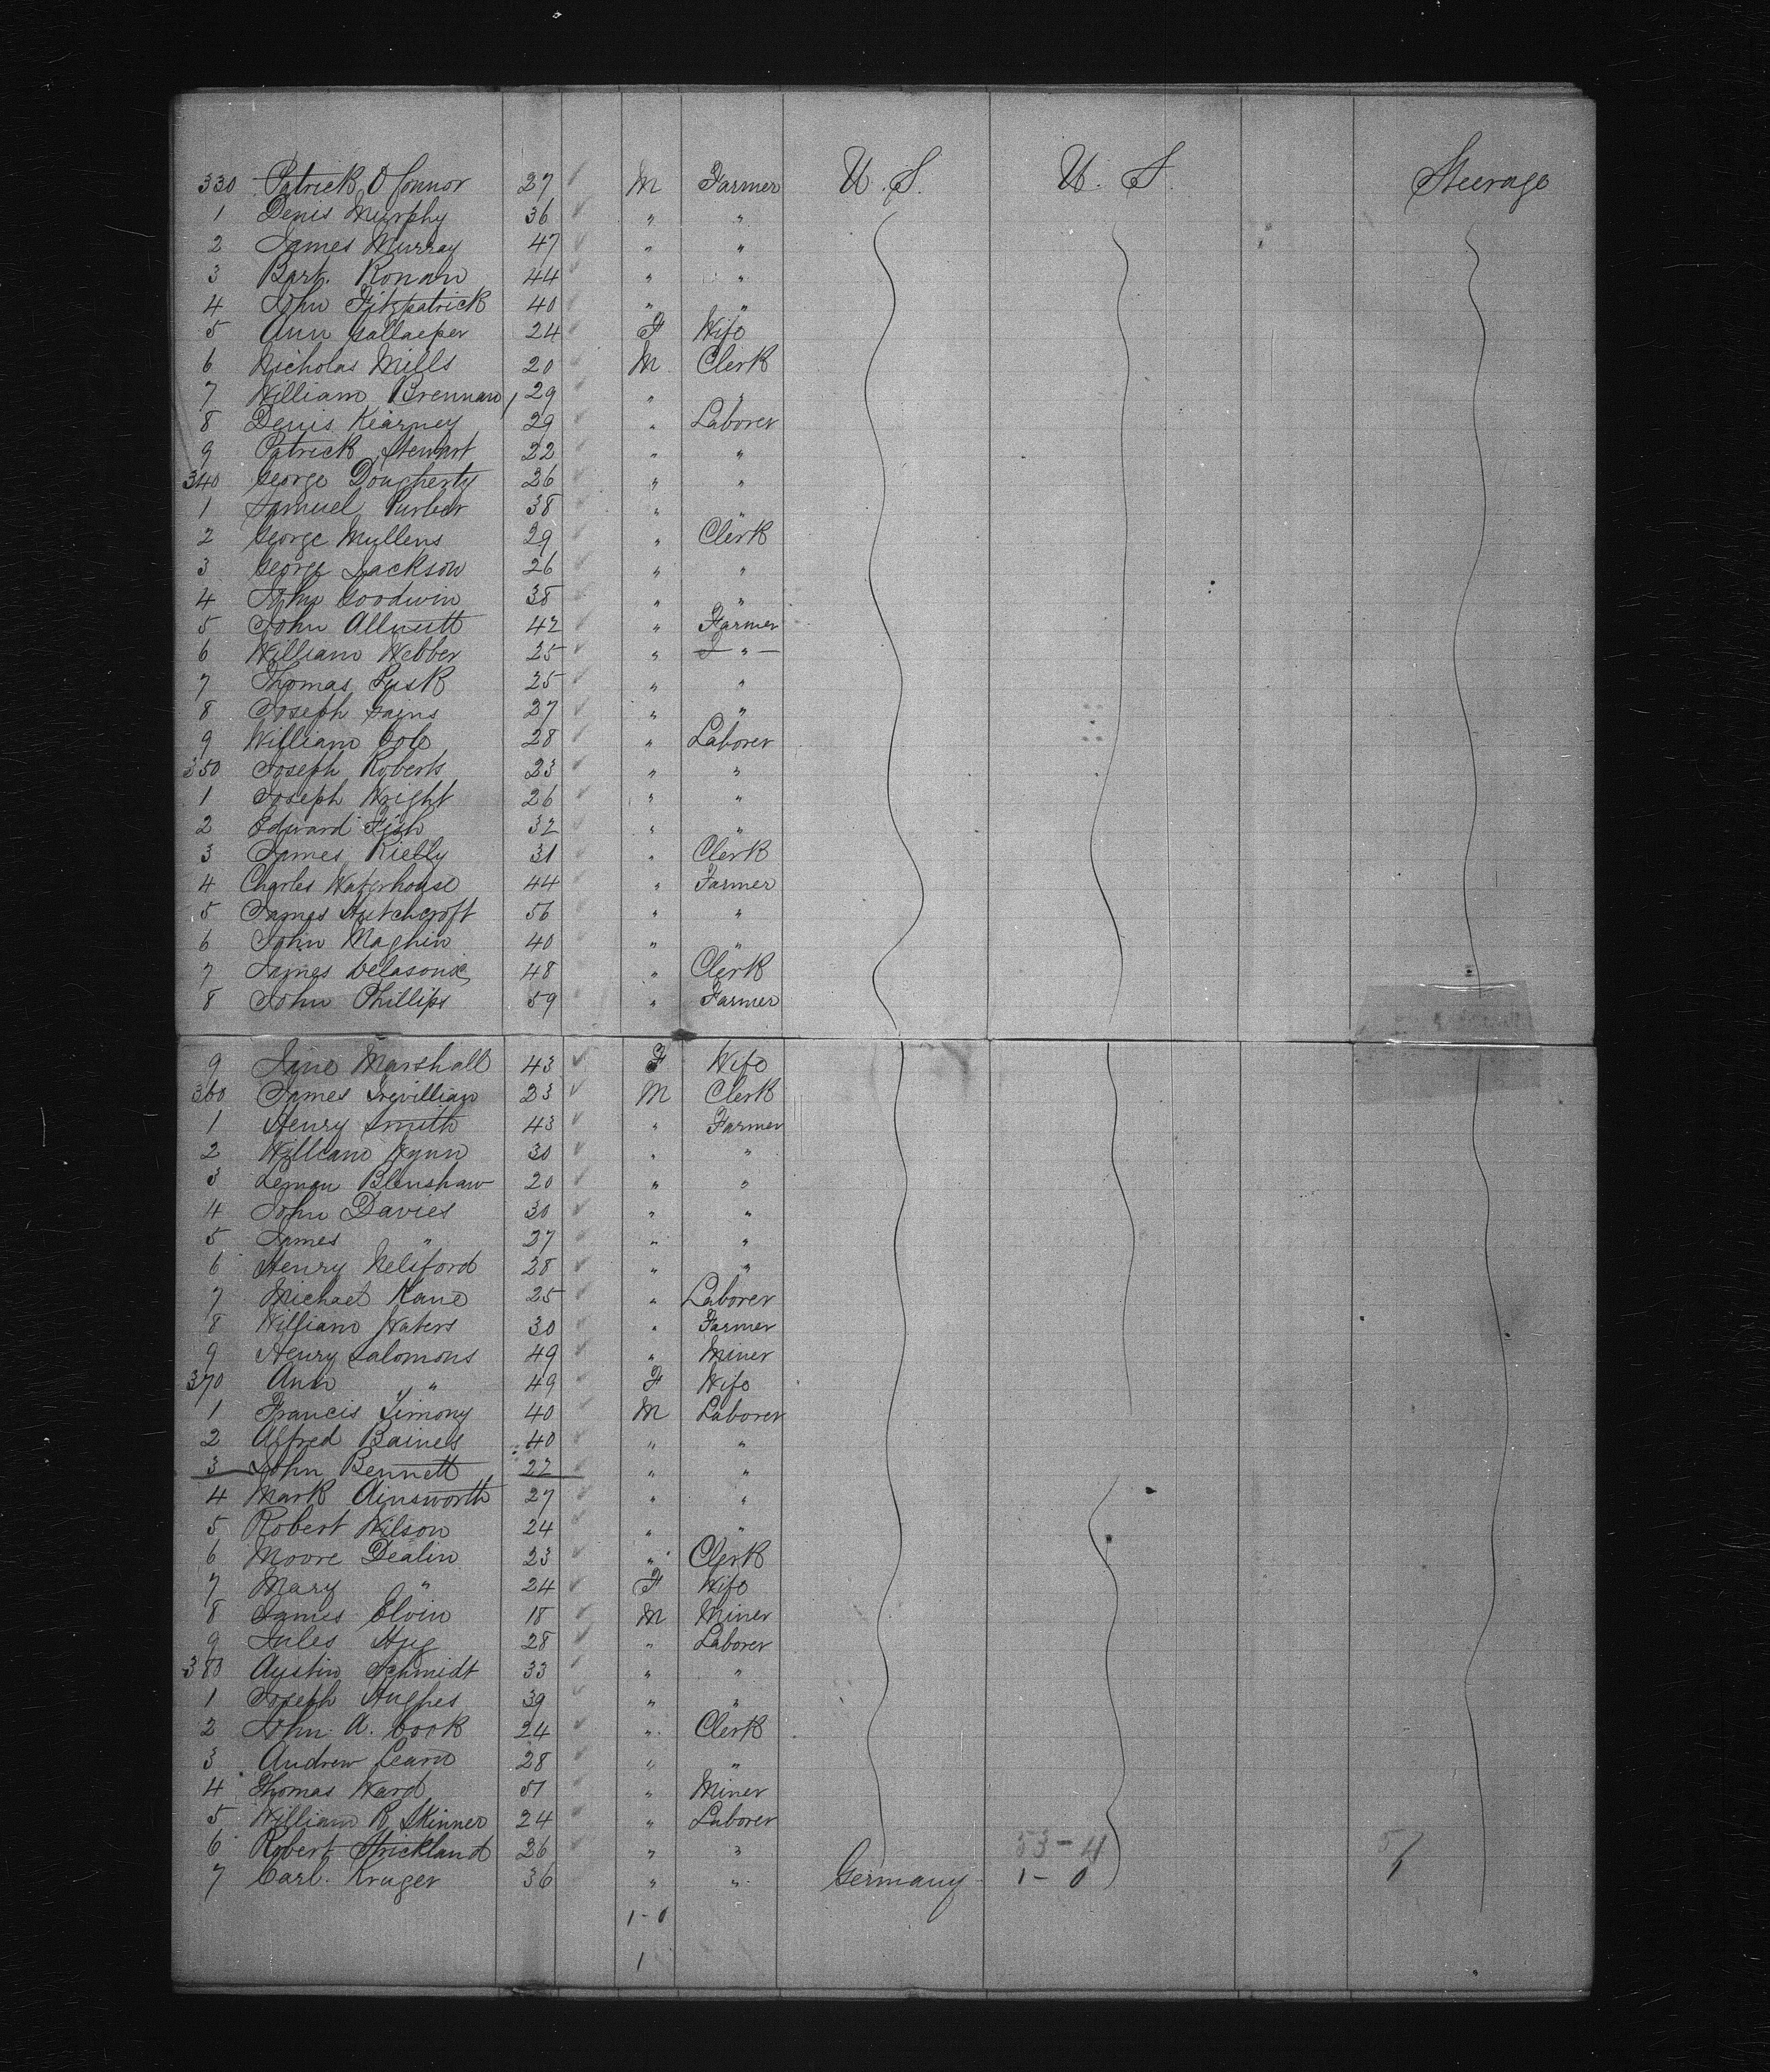 330 Patrick O'Connor 27 M Farmer U. S. U. S. Steerage
1 Denis Murphy 36 " "
2 James Murray 47 " "
3 Bart. Ronan 44 " "
4 John Fitzpatrick 40 " "
5 Ann Gallaeper 24 F Wife
6 Nicholas Mills 20 M Clerk
7 William Brennan 29 " "
8 Denis Kearney 29 " Laborer
9 Patrick Stewart 22 " "
340 George Dougherty 26 " "
1 Samuel 38 " "
2 George Mullens 29 " Clerk
3 George Jackson 26 " "
4 John Goodwin 38 " "
5 John Allnutt 42 " Farmer
6 William Webber 25 " "
7 Thomas Lusk 25 " "
8 Joseph Gains 27 " "
9 William Cole 28 " Laborer
350 Joseph Roberts 23 " "
1 Joseph Wright 26 " "
2 Edward Fish 32 " "
3 James Rielly 31 " Clerk
4 Charles Waterhouse 44 " Farmer
5 James Hutchcroft 56 " "
6 John Maghin 40 " "
7 James 48 " Clerk
8 John Phillips 59 " Farmer
9 Jane Marshall 43 F Wife
360 James Trevillian 23 M Clerk
1 Henry Smith 43 " Farmer
2 William Wynn 30 " "
3 Leman Blenshaw 20 " "
4 John Davies 30 " "
5 James " 27 " "
6 Henry Welsford 28 " "
7 Michael Kane 25 " Laborer
8 William Waters 30 " Farmer
9 Henry Salomons 49 " Miner
370 Ann " 49 F Wife
1 Francis Timony 40 M Laborer
2 Alfred Baines 40 " "
3 John Bennett 22 " "
4 Mark Ainsworth 27 " "
5 Robert Wilson 24 " "
6 Moore Dealin 23 " Clerk
7 Mary " 24 F Wife
8 James Elvin 18 M Miner
9 Jules Hug 28 " Laborer
380 Austin Schmidt 33 " "
1 Joseph Hughes 39 " "
2 John A. Cook 24 " Clerk
3 Andrew Leam 28 " "
4 Thomas Ward 51 " Miner
5 William R Skinner 24 " Laborer
6 Robert Strickland 26 " " 53-4
7 Carl Kruger 36 " " Germany 1-0
1-0
1